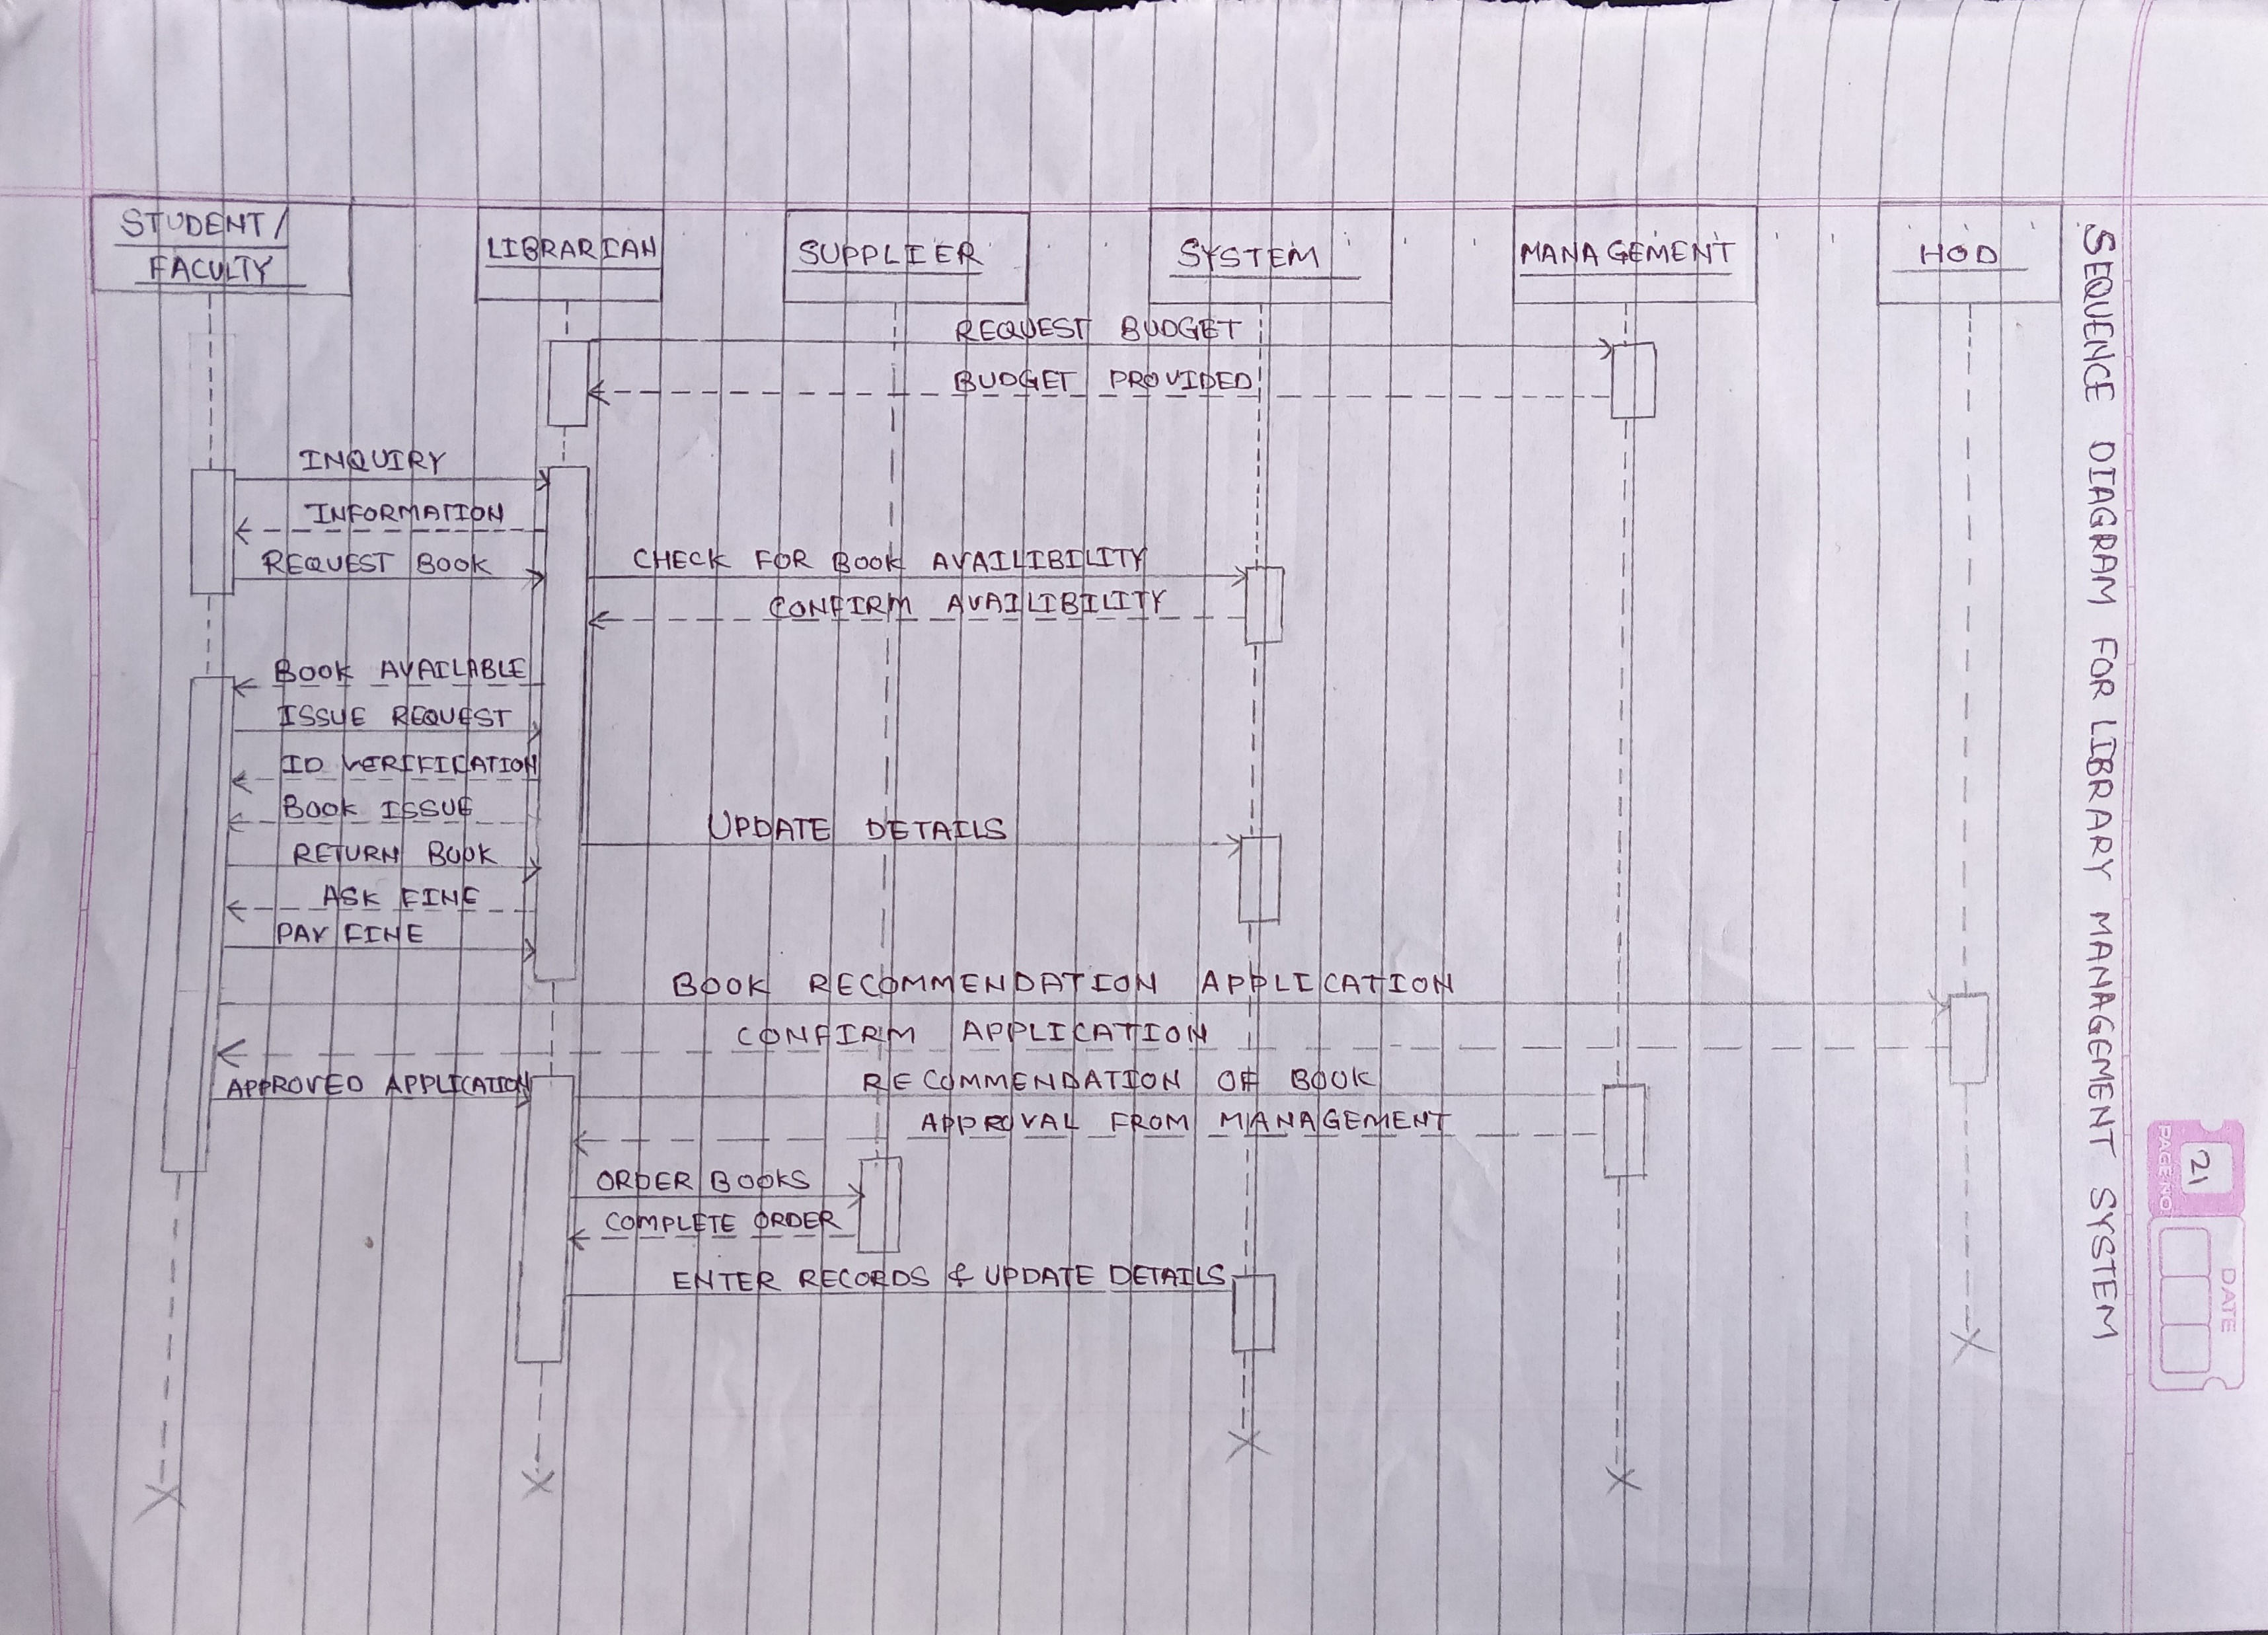 STUDENT/
FACULTY
LIBRARIAN
SUPPLIER
SYSTEM
MANAGEMENT
HOD
REQUEST BUDGET
BUDGET PROVIDED
INQUIRY
INFORMATION
REQUEST BOOK
CHECK FOR BOOK AVAILIBILITY
CONFIRM AVAILIBILITY
BOOK AVAILABLE
ISSUE REQUEST
ID VERIFICATION
BOOK ISSUE
UPDATE DETAILS
RETURN BOOK
ASK FINE
PAY FINE
BOOK RECOMMENDATION APPLICATION
CONFIRM APPLICATION
APPROVED APPLICATION
RECOMMENDATION OF BOOK
APPROVAL FROM MANAGEMENT
ORDER BOOKS
COMPLETE ORDER
ENTER RECORDS & UPDATE DETAILS
SEQUENCE DIAGRAM FOR LIBRARY MANAGEMENT SYSTEM
PAGE NO
21
DATE